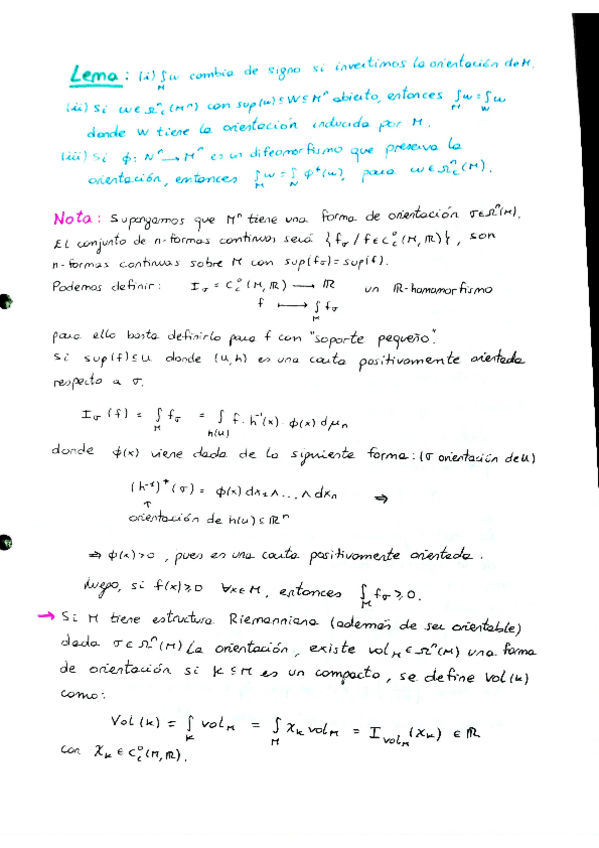 Lema: (i) ∫_M ω cambia de signo si invertimos la orientación de M.
(ii) Si ω∈Ω^n_c(M^n) con sup(ω)⊆W⊆M^n abierto, entonces ∫_M ω = ∫_W ω
donde W tiene la orientación inducida por M.
(iii) Si ϕ: N^n → M^n es un difeomorfismo que preserva la
orientación, entonces ∫_M ω = ∫_N ϕ*(ω), para ω∈Ω^n_c(M).
Nota: Supongamos que M^n tiene una forma de orientación σ∈Ω^n(M).
El conjunto de n-formas continuas será {fσ / f∈C^0_c(M,ℝ)}, son
n-formas continuas sobre M con sup(fσ)=sup(f).
Podemos definir: I_σ = C^0_c(M,ℝ) → ℝ un ℝ-homomorfismo
f ↦ ∫_M fσ
para ello basta definirlo para f con "soporte pequeño".
Si sup(f)⊆U donde (U,h) es una carta positivamente orientada
respecto a σ.
I_σ(f) = ∫_M fσ = ∫_{h(U)} f·h⁻¹(x)·ϕ(x) dμ_n
donde ϕ(x) viene dada de la siguiente forma: (σ orientación de U)
(h⁻¹)*(σ) = ϕ(x) dx₁∧...∧dx_n ⇒
↑
orientación de h(U)⊆ℝ^n
⇒ ϕ(x)>0, pues es una carta positivamente orientada.
Luego, si f(x)≥0 ∀x∈M, entonces ∫_M fσ ≥ 0.
→ Si M tiene estructura Riemanniana (además de ser orientable)
dada σ∈Ω^n(M) la orientación, existe vol_M∈Ω^n(M) una forma
de orientación si K⊆M es un compacto, se define Vol(K)
como:
Vol(K) = ∫_K vol_M = ∫_M χ_K vol_M = I_{vol_M}(χ_K) ∈ ℝ
con χ_K∈C^0_c(M,ℝ).